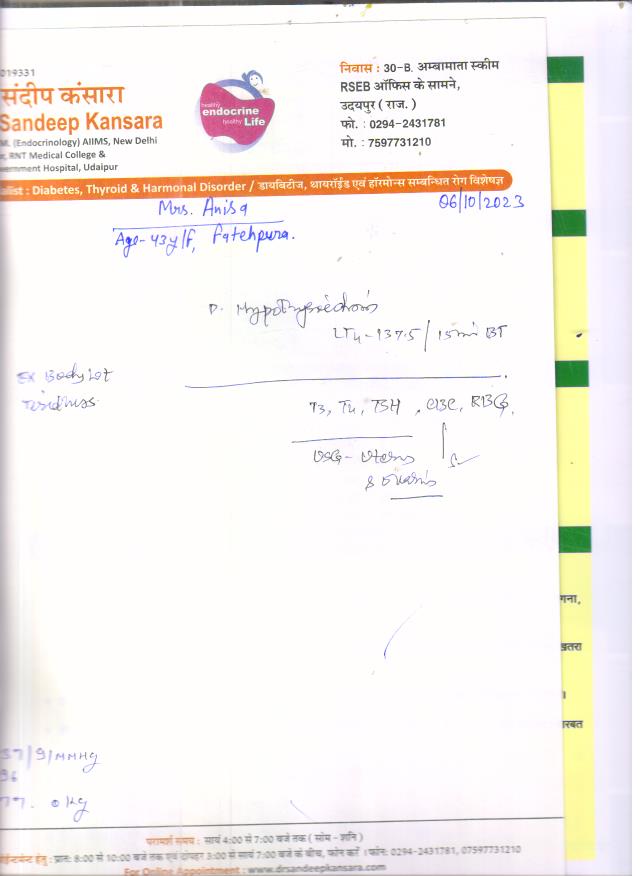 019331
संदीप कंसारा
Sandeep Kansara
M. (Endocrinology) AIIMS, New Delhi
r, RNT Medical College &
vernment Hospital, Udaipur
healthy
endocrine
healthy Life
निवास : 30-B, अम्बामाता स्कीम
RSEB ऑफिस के सामने,
उदयपुर ( राज. )
फो. : 0294-2431781
मो. : 7597731210
alist : Diabetes, Thyroid & Harmonal Disorder / डायबिटीज, थायरॉईड एवं हॉरमोन्स सम्बन्धित रोग विशेषज्ञ
Mrs. Anisa
06/10/2023
Age- 43y/F, Fatehpura.
Hypothyroidism
LT4 - 137.5 / 15min BT
Body
T3, T4, TSH, CBC, RBG,
USG - Uterus
& Ovaries
गना,
खतरा
।
रबत
37/91mmHg
96
77.0 kg
परामर्श समय : सायं 4:00 से 7:00 बजे तक ( सोम - शनि )
ईन्टमेन्ट हेतु : प्रातः 8:00 से 10:00 बजे तक एवं दोपहर 3:00 से सायं 7:00 बजे के बीच, फोन करें । फोन: 0294-2431781, 07597731210
For Online Appointment : www.drsandeepkansara.com